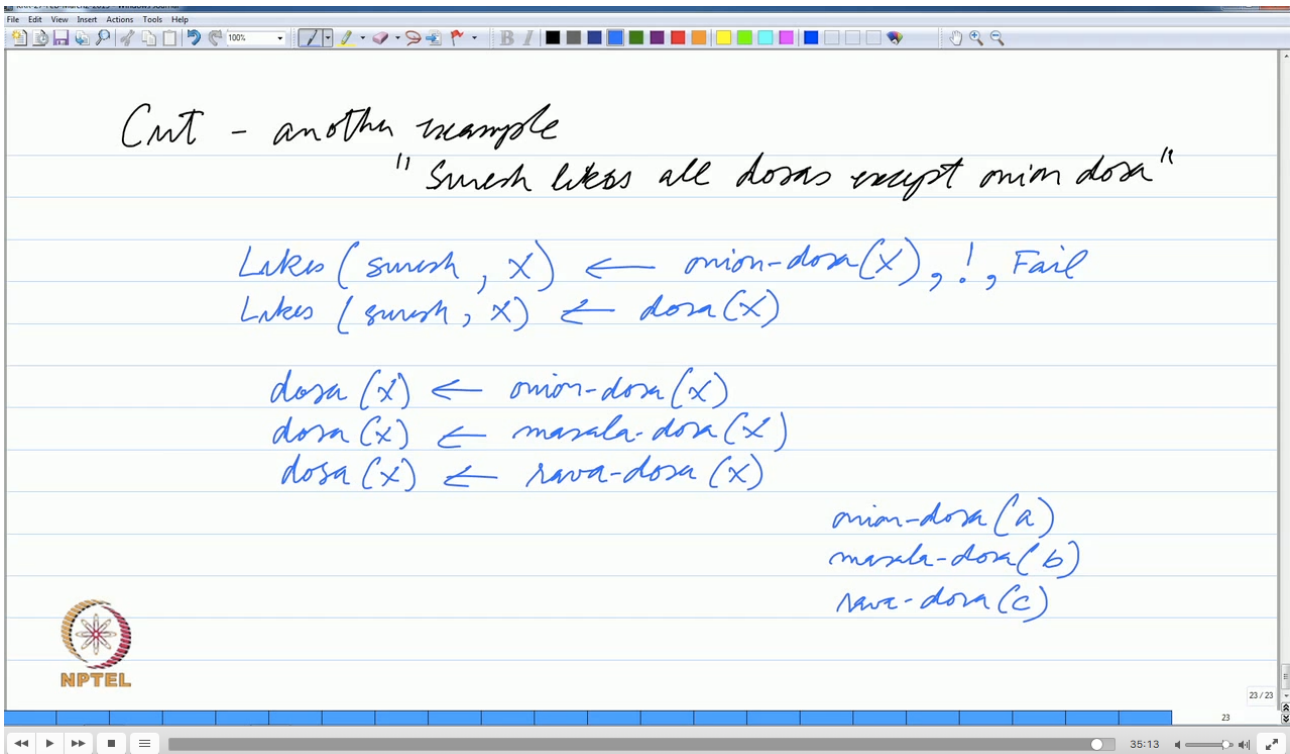 File Edit View Insert Actions Tools Help
100%
B I
Cut - another example
"Suresh likes all dosas except onion dosa"
Likes (suresh, X) ← onion-dosa(X), !, Fail
Likes (suresh, X) ← dosa(X)
dosa (X) ← onion-dosa(X)
dosa (X) ← masala-dosa(X)
dosa (X) ← rava-dosa (X)
onion-dosa(a)
masala-dosa(b)
rava-dosa(c)
NPTEL
23 / 23
23
35:13